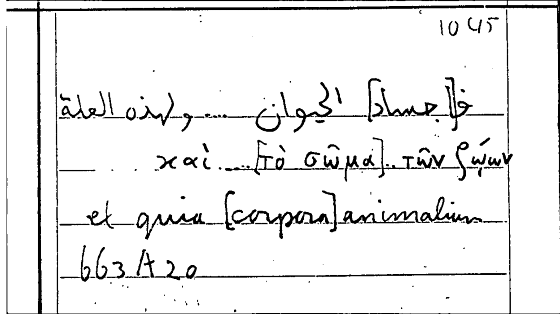 1045
فـ[ـأجساد] الحيوان .... ولهذه العلة
καὶ .... [τὸ σῶμα].. τῶν ζῴων
et quia [corpora] animalium
663 A 20